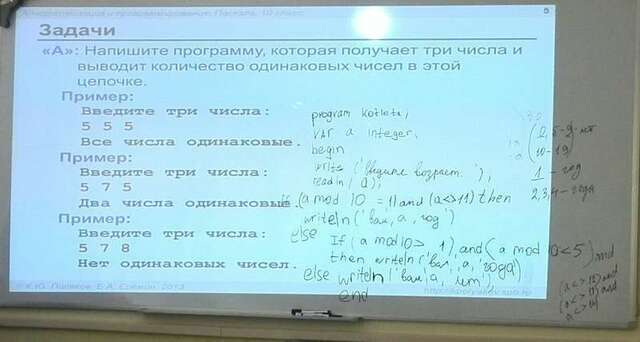 Алгоритмизация и программирование, Паскаль, 10 класс
5
Задачи
«A»: Напишите программу, которая получает три числа и
выводит количество одинаковых чисел в этой
цепочке.
Пример:
Введите три числа:
5 5 5
Все числа одинаковые.
Пример:
Введите три числа:
5 7 5
Два числа одинаковые.
Пример:
Введите три числа:
5 7 8
Нет одинаковых чисел.
program kotleta;
var a integer;
begin
write ('Введите возраст. ');
readln (a);
if (a mod 10 = 1) and (a<>11) then
writeln ('вам, a, год')
else
If (a mod 10 > 1) and (a mod 10 < 5) and
then writeln ('вам', a, 'года)
else writeln ('вам, a, лет')
end
(a <> 12) and
(a <> 13) and
a <> 14)
0, 5-9 - лет
(10-19)
1 - год
2,3,4 - года
© К.Ю. Поляков, Е.А. Ерёмин, 2013
http://kpolyakov.spb.ru